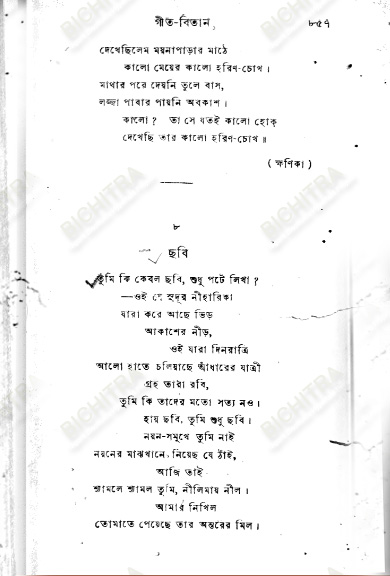 গীত-বিতান
৮৫৭
দেখেছিলেম ময়নাপাড়ার মাঠে
কালো মেয়ের কালো হরিণ-চোখ।
মাথার পরে দেয়নি তুলে বাস,
লজ্জা পাবার পায়নি অবকাশ।
কালো? তা সে যতই কালো হোক্
দেখেছি তার কালো হরিণ-চোখ॥
(ক্ষণিকা)
৮
ছবি
তুমি কি কেবল ছবি, শুধু পটে লিখা?
—ওই যে সুদূর নীহারিকা
যারা করে আছে ভিড়
আকাশের নীড়,
ওই যারা দিনরাত্রি
আলো হাতে চলিয়াছে আঁধারের যাত্রী
গ্রহ তারা রবি,
তুমি কি তাদের মতো সত্য নও।
হায় ছবি, তুমি শুধু ছবি।
নয়ন-সমুখে তুমি নাই
নয়নের মাঝখানে নিয়েছ যে ঠাঁই,
আজি তাই
শ্যামলে শ্যামল তুমি, নীলিমায় নীল।
আমার নিখিল
তোমাতে পেয়েছে তার অন্তরের মিল।
BICHITRA